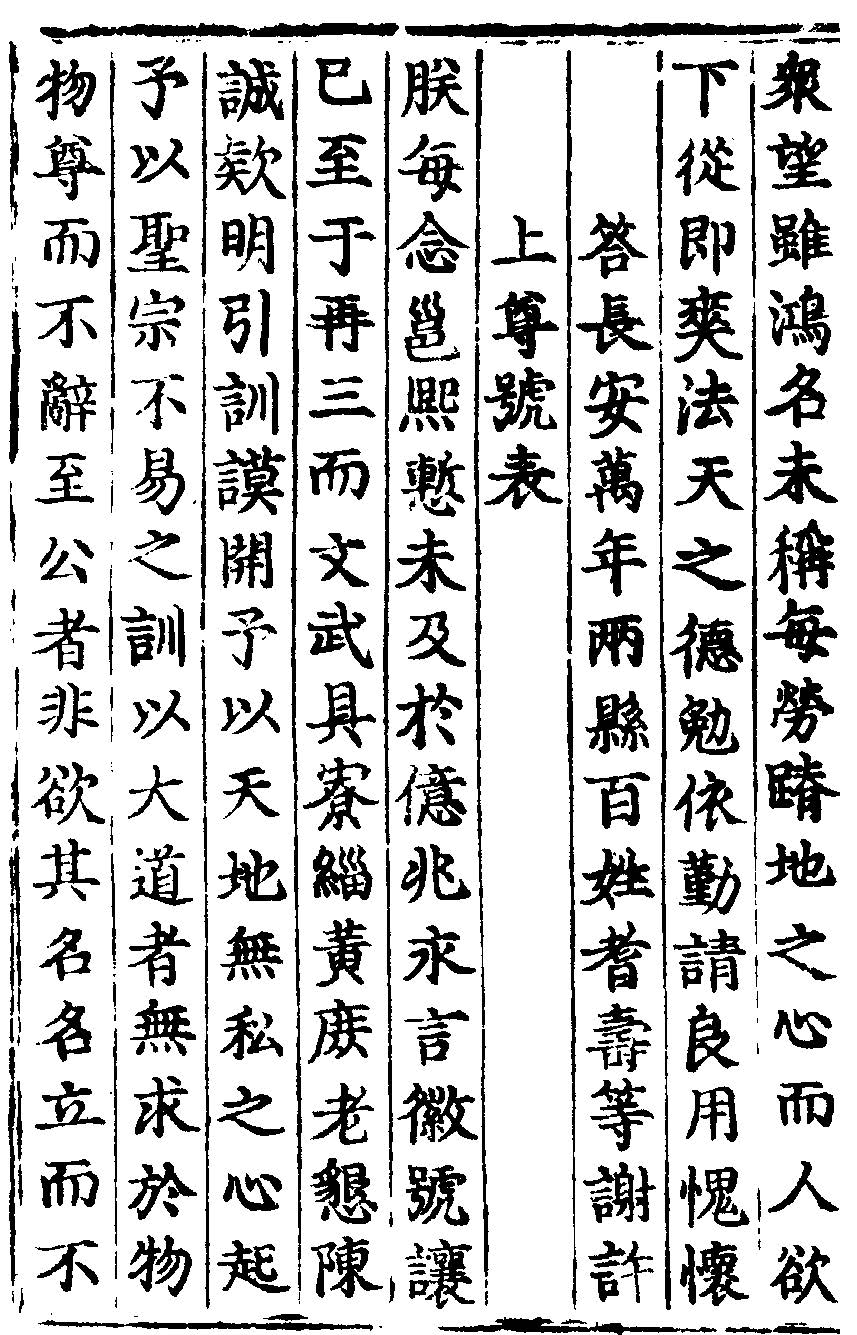 衆望雖鴻名未稱每勞蹐地之心而人欲
下從即爽法天之德勉依勤請良用愧懷
答長安萬年兩縣百姓耆壽等謝許
上尊號表
朕每念邕熙慙未及於億兆永言徽號讓
已至于再三而文武具寮緇黃庶老懇陳
誠欵明引訓謨開予以天地無私之心起
予以聖宗不易之訓以大道者無求於物
物尊而不辭至公者非欲其名名立而不